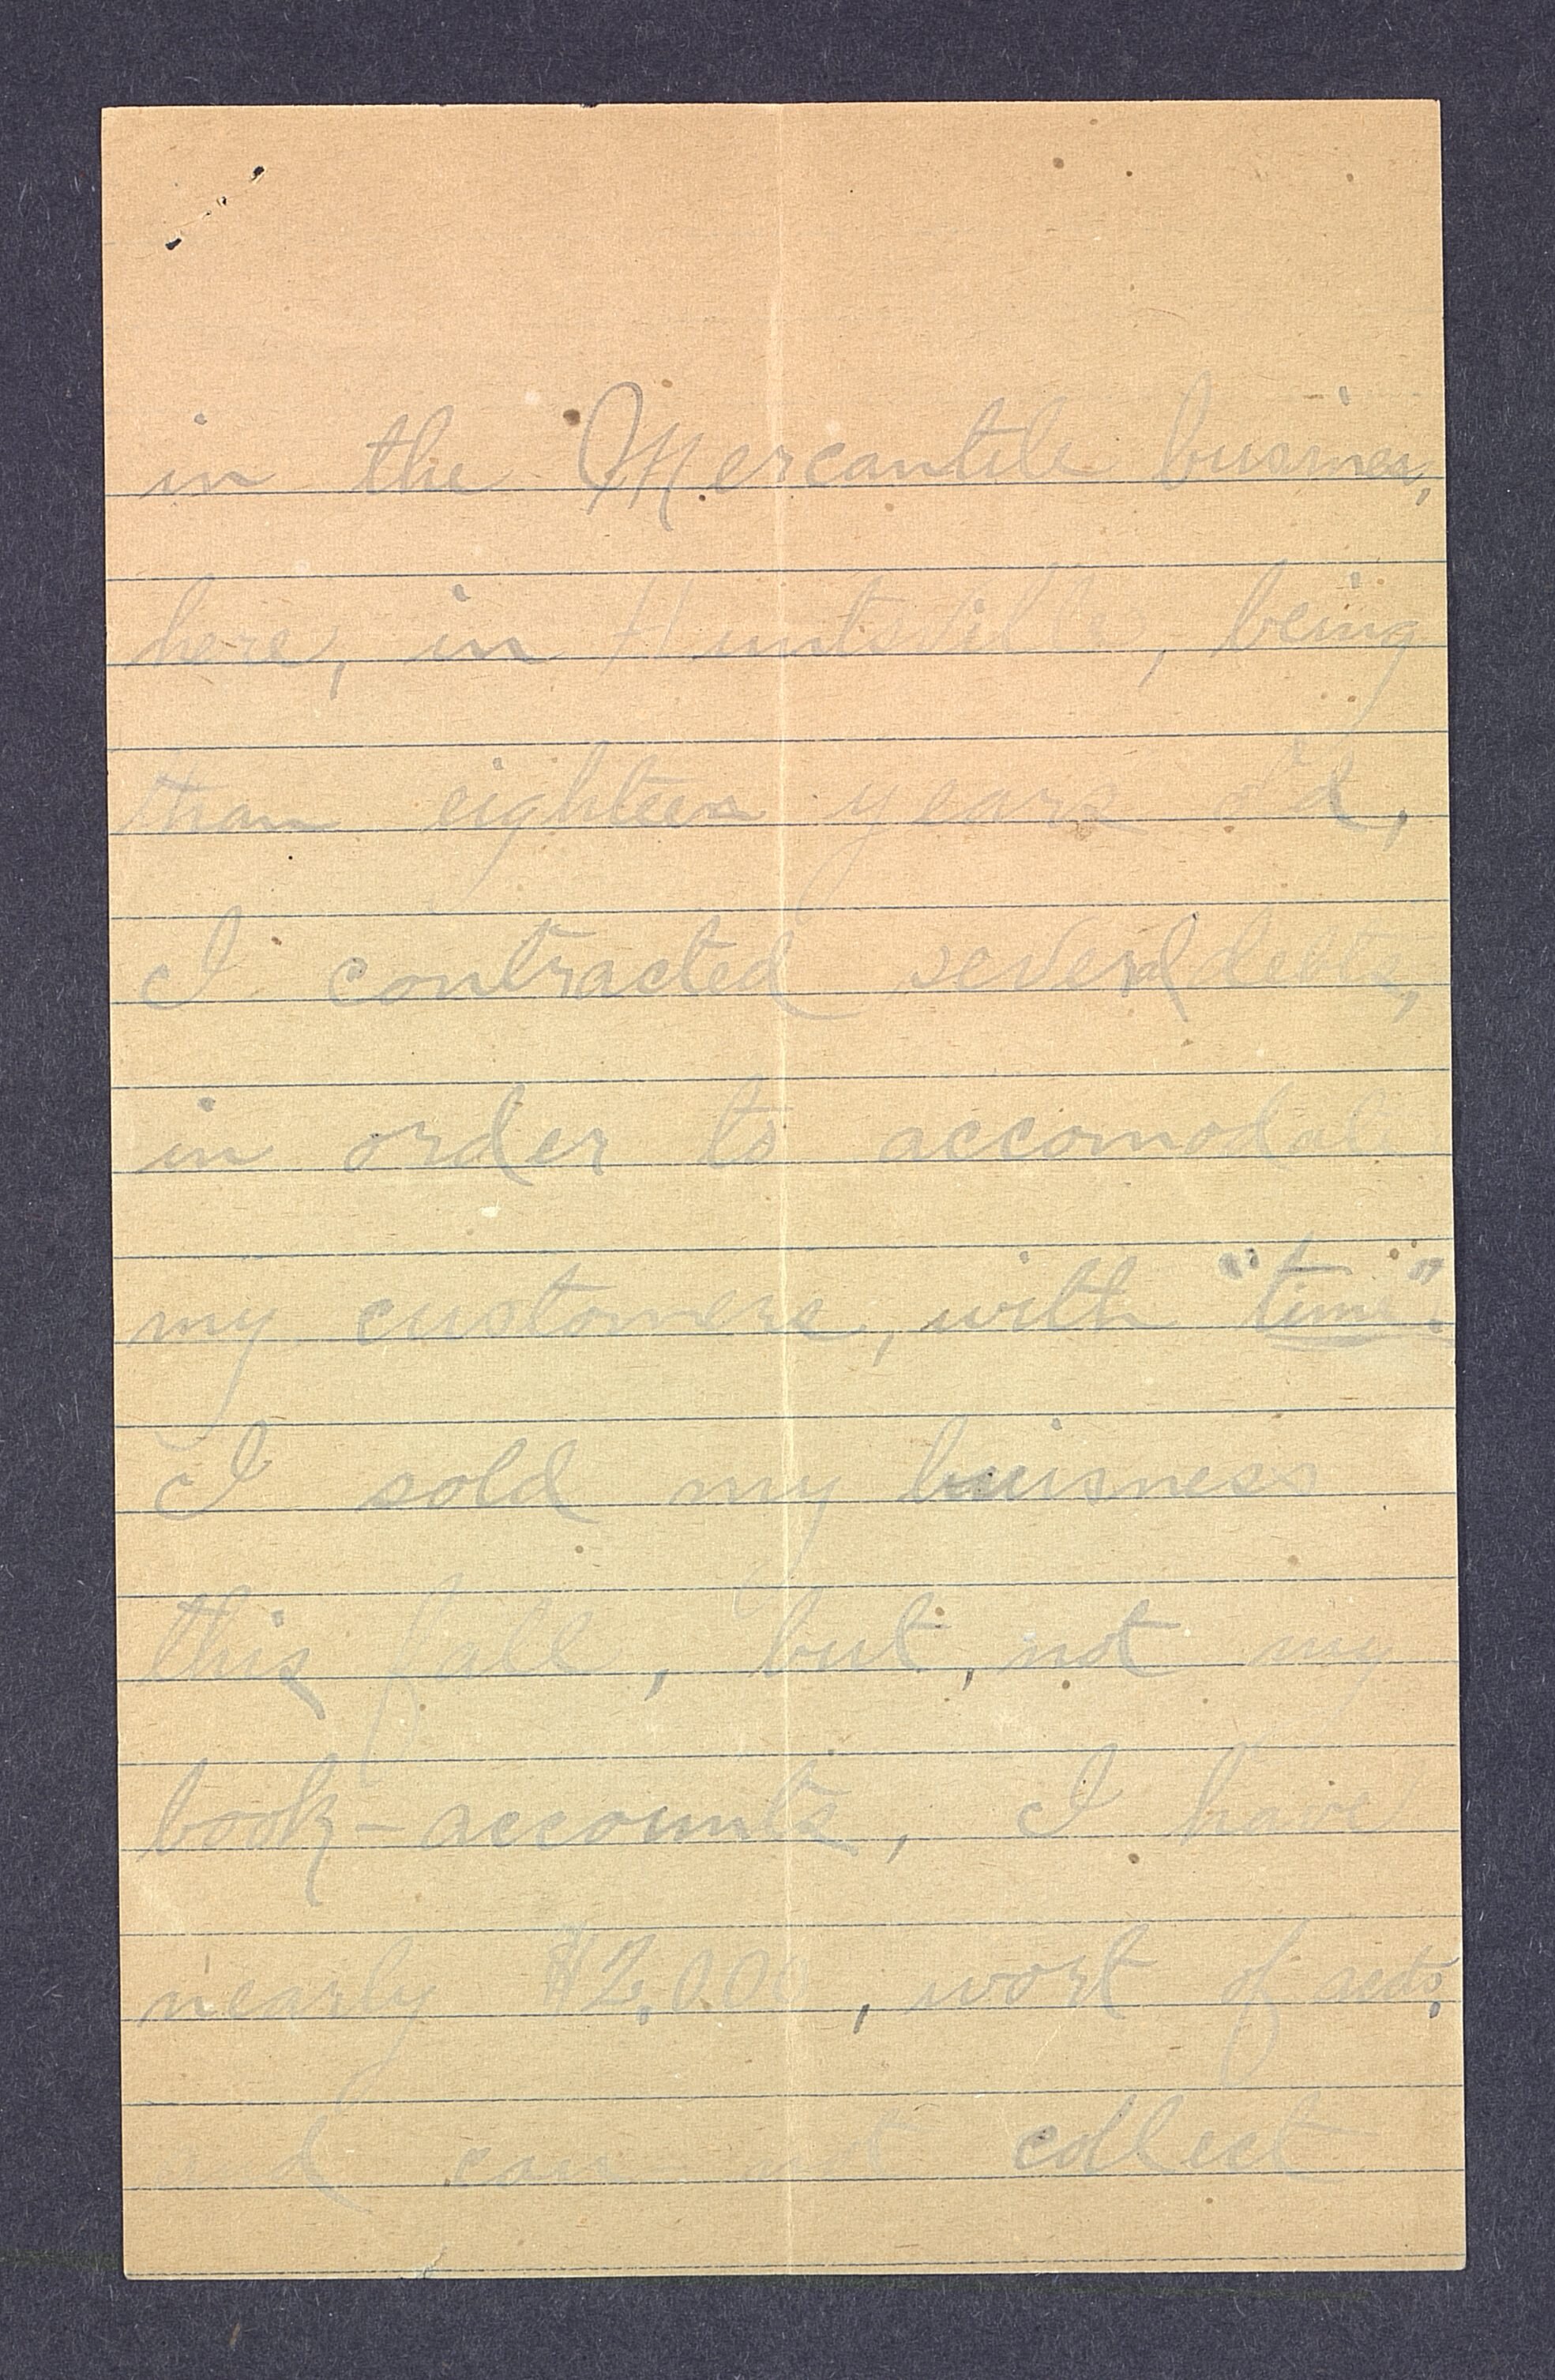 in the Mercantile business,
here, in Huntsville, being
than eighteen years old,
I contracted several debts,
in order to accomodate
my customers, with "time".
I sold my buisness
this fall, but, not my
book-accounts, I have
nearly $2,000, wort of accts,
and can not collect